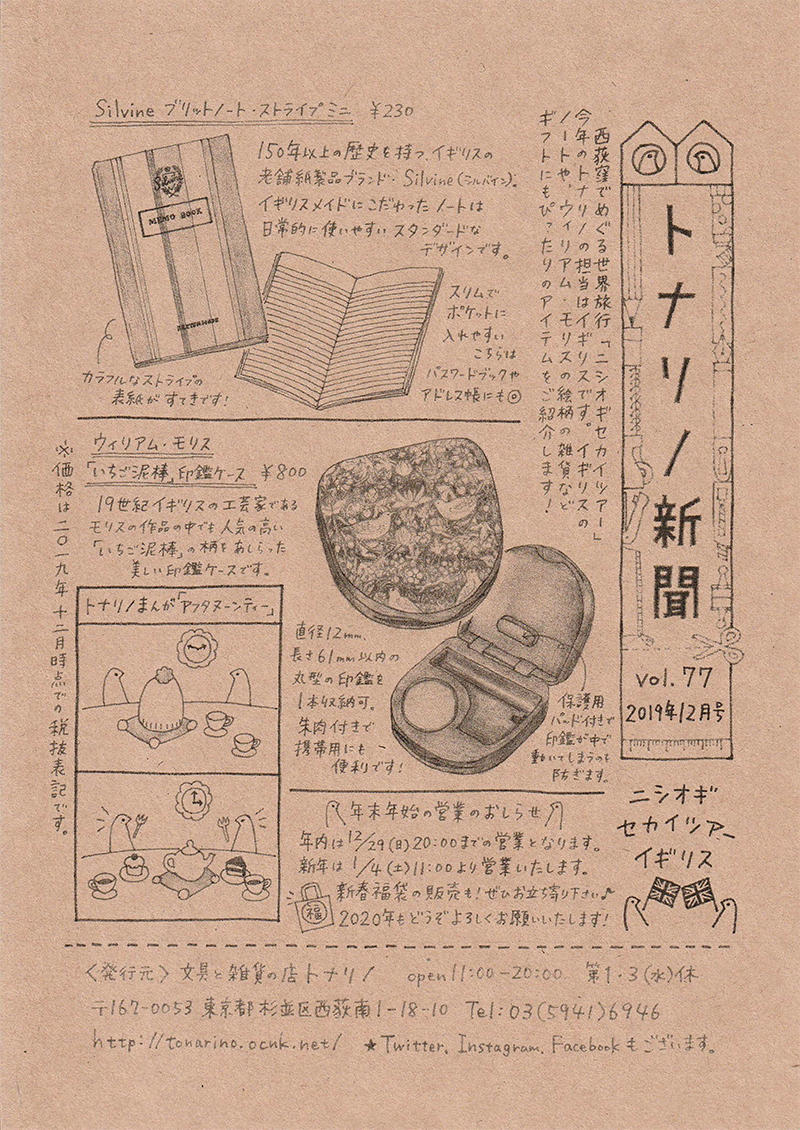 トナリノ新聞
vol. 77
2019年12月号
ニシオギ
セカイツアー
イギリス
西荻窪でめぐる世界旅行「ニシオギセカイツアー」
今年のトナリノの担当はイギリスです。イギリスの
ノートや、ウィリアム・モリスの絵柄の雑貨など
ギフトにもぴったりのアイテムをご紹介します!
Silvine ブリットノート・ストライプミニ ¥230
150年以上の歴史を持つ、イギリスの
老舗紙製品ブランド・Silvine(シルバイン)。
イギリスメイドにこだわったノートは
日常的に使いやすいスタンダードな
デザインです。
Silvine
MEMO BOOK
スリムで
ポケットに
入れやすい
こちらは
パスワードブックや
アドレス帳にも◎
カラフルなストライプの
表紙がすてきです!
ウィリアム・モリス
「いちご泥棒」印鑑ケース ¥800
19世紀イギリスの工芸家である
モリスの作品の中でも人気の高い
「いちご泥棒」の柄をあしらった
美しい印鑑ケースです。
直径12mm、
長さ61mm以内の
丸型の印鑑を
1本収納可。
朱肉付きで
携帯用にも
便利です!
保護用
パッド付きで
印鑑が中で
動いてしまうのを
防ぎます。
※価格は二〇一九年十二月時点での税抜表記です。
トナリノまんが「アフタヌーンティー」
年末年始の営業のおしらせ
年内は12/29(日)20:00までの営業となります。
新年は1/4(土)11:00より営業いたします。
新春福袋の販売も!ぜひお立ち寄り下さい♪
福
2020年もどうぞよろしくお願いいたします!
〈発行元〉文具と雑貨の店トナリノ open11:00-20:00 第1・3(水)休
〒167-0053 東京都杉並区西荻南1-18-10 Tel:03(5941)6946
http://tonarino.ocnk.net/ ★Twitter、Instagram、Facebookもございます。